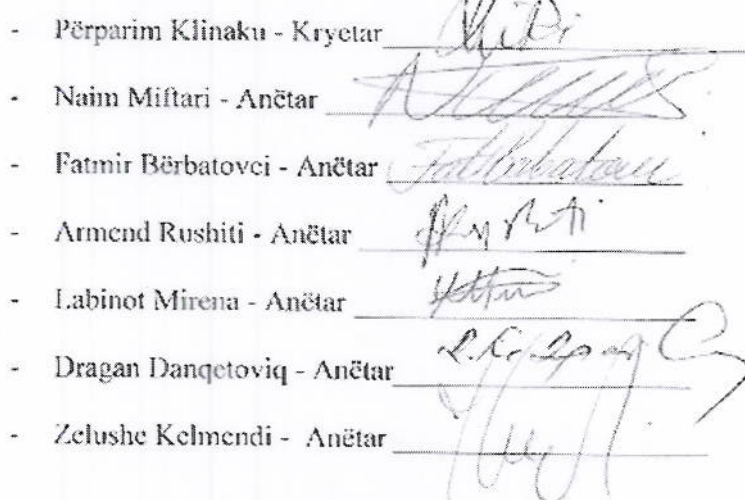 - Përparim Klinaku - Kryetar
- Naim Miftari - Anëtar
- Fatmir Bërbatovci - Anëtar
- Armend Rushiti - Anëtar
- Labinot Mirena - Anëtar
- Dragan Danqetoviq - Anëtar
- Zelushe Kelmendi - Anëtar